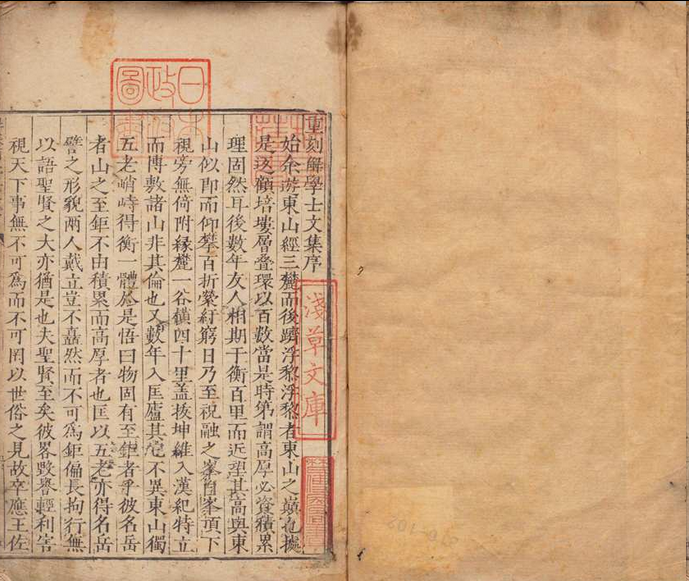 重刻解學士文集序
始余遊東山經三麓而後躋浮黎浮黎者東山之巔也據
是返顧培塿層叠環以百數當是時第謂高厚必資積累
理固然耳後數年友人相期于衡百里而近望其高與東
山似即而仰攀百折縈紆窮日乃至祝融之峯自峯頂下
視旁無倚附緣麓一谷橫四十里蓋拔坤維入漢紀特立
而博敷諸山非其倫也又數年入匡廬其它不異東山獨
五老峭峙得衡一體於是悟曰物固有至鉅者乎彼名岳
者山之至鉅不由積累而高厚者也匡以五老亦得名岳
譬之形貌兩人戴立豈不矗然而不可為鉅備長拘行無
以語聖賢之大亦猶是也夫聖賢至矣彼畧毀譽輕利害
視天下事無不可為而不可罔以世俗之見故幸應王佐
日本政府圖書
淺草文庫